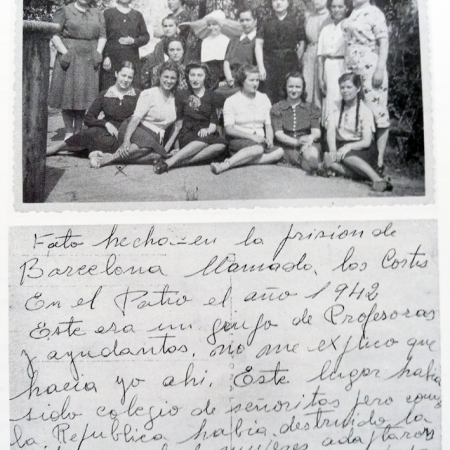 Foto hecha en la prision de
Barcelona llamado, los Cortis
En el Patio el año 1942
Este era un grupo de Profesoras
y ayudantas, no me explico que
hacia yo ahi. Este lugar habia
sido colegio de señoritas pero como
la Republica habia destruido la
mujeres adaptaron